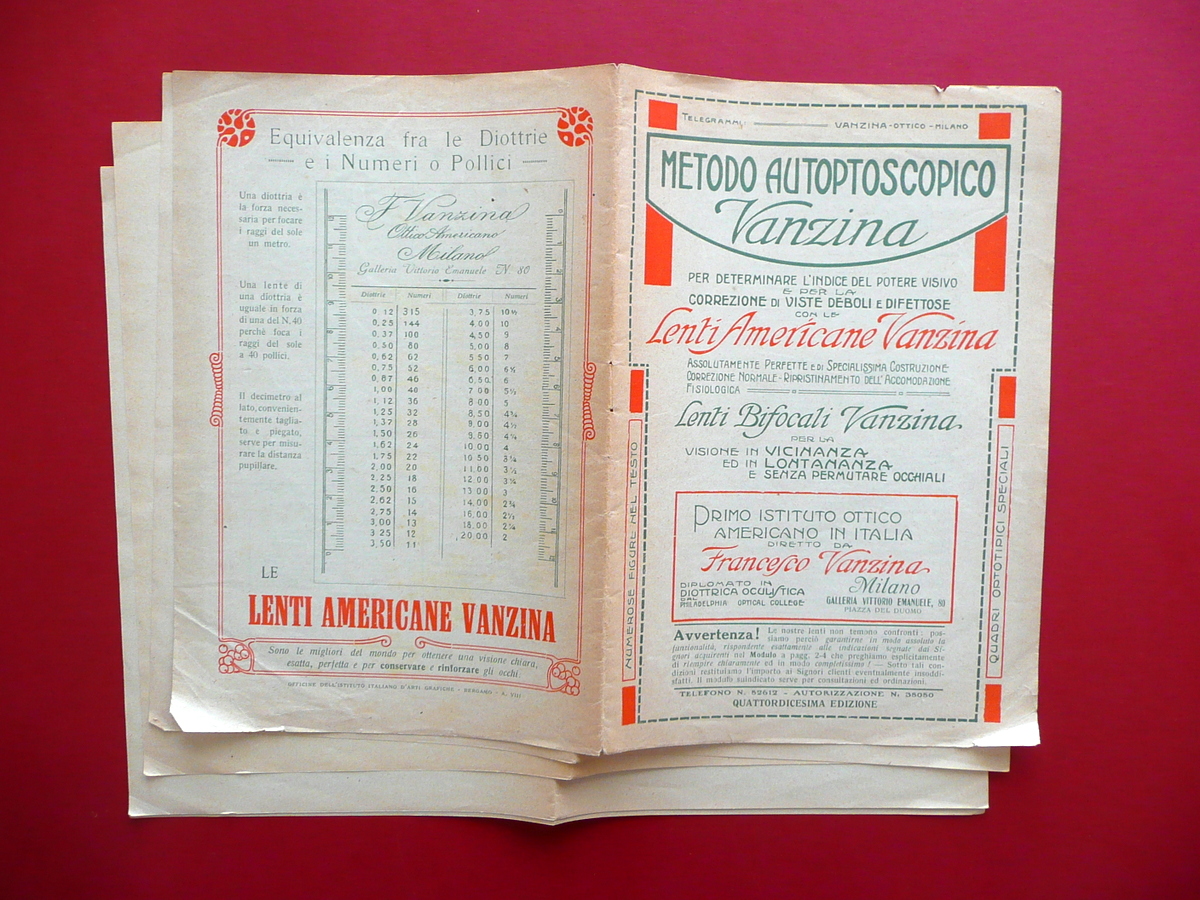 Equivalenza fra le Diottrie
e i Numeri o Pollici
Una diottria è
la forza neces-
saria per focare
i raggi del sole
un metro.
Una lente di
una diottria è
uguale in forza
di una del N. 40
perchè foca i
raggi del sole
a 40 pollici.
Il decimetro al
lato, convenien-
temente taglia-
to e piegato,
serve per misu-
rare la distanza
pupillare.
F. Vanzina
Ottico Americano
Milano
Galleria Vittorio Emanuele N. 80
Diottrie Numeri Diottrie Numeri
0,12 315 3,75 10½
0,25 144 4,00 10
0,37 100 4,50 9
0,50 80 5,00 8
0,62 62 5,50 7
0,75 52 6,00 6½
0,87 46 6,50 6
1,00 40 7,00 5½
1,12 36 8,00 5
1,25 32 8,50 4¾
1,37 28 9,00 4½
1,50 26 9,50 4¼
1,62 24 10,00 4
1,75 22 10,50 3¾
2,00 20 11,00 3½
2,25 18 12,00 3¼
2,50 16 13,00 3
2,62 15 14,00 2¾
2,75 14 16,00 2½
3,00 13 18,00 2¼
3,25 12 20,00 2
3,50 11
LE
LENTI AMERICANE VANZINA
Sono le migliori del mondo per ottenere una visione chiara,
esatta, perfetta e per conservare e rinforzare gli occhi.
OFFICINE DELL'ISTITUTO ITALIANO D'ARTI GRAFICHE - BERGAMO - A. VIII
TELEGRAMMI: VANZINA-OTTICO-MILANO
METODO AUTOPTOSCOPICO
Vanzina
PER DETERMINARE L'INDICE DEL POTERE VISIVO
E PER LA
CORREZIONE DI VISTE DEBOLI E DIFETTOSE
CON LE
Lenti Americane Vanzina
ASSOLUTAMENTE PERFETTE E DI SPECIALISSIMA COSTRUZIONE-
CORREZIONE NORMALE-RIPRISTINAMENTO DELL'ACCOMODAZIONE
FISIOLOGICA
Lenti Bifocali Vanzina
PER LA
VISIONE IN VICINANZA
ED IN LONTANANZA
E SENZA PERMUTARE OCCHIALI
NUMEROSE FIGURE NEL TESTO
QUADRI OPTOTIPICI SPECIALI
PRIMO ISTITUTO OTTICO
AMERICANO IN ITALIA
DIRETTO DA
Francesco Vanzina
DIPLOMATO IN
DIOTTRICA OCULISTICA
DAL
PHILADELPHIA OPTICAL COLLEGE
Milano
GALLERIA VITTORIO EMANUELE, 80
PIAZZA DEL DUOMO
Avvertenza! Le nostre lenti non temono confronti: pos-
siamo perciò garantirne in modo assoluto la
funzionalità, rispondente esattamente alle indicazioni segnate dai Si-
gnori acquirenti nel Modulo a pagg. 2-4 che preghiamo esplicitamente
di riempire chiaramente ed in modo completissimo! — Sotto tali con-
dizioni restituiamo l'importo ai Signori clienti eventualmente insoddi-
sfatti. Il modulo suindicato serve per consultazioni ed ordinazioni.
TELEFONO N. 82612 - AUTORIZZAZIONE N. 38080
QUATTORDICESIMA EDIZIONE